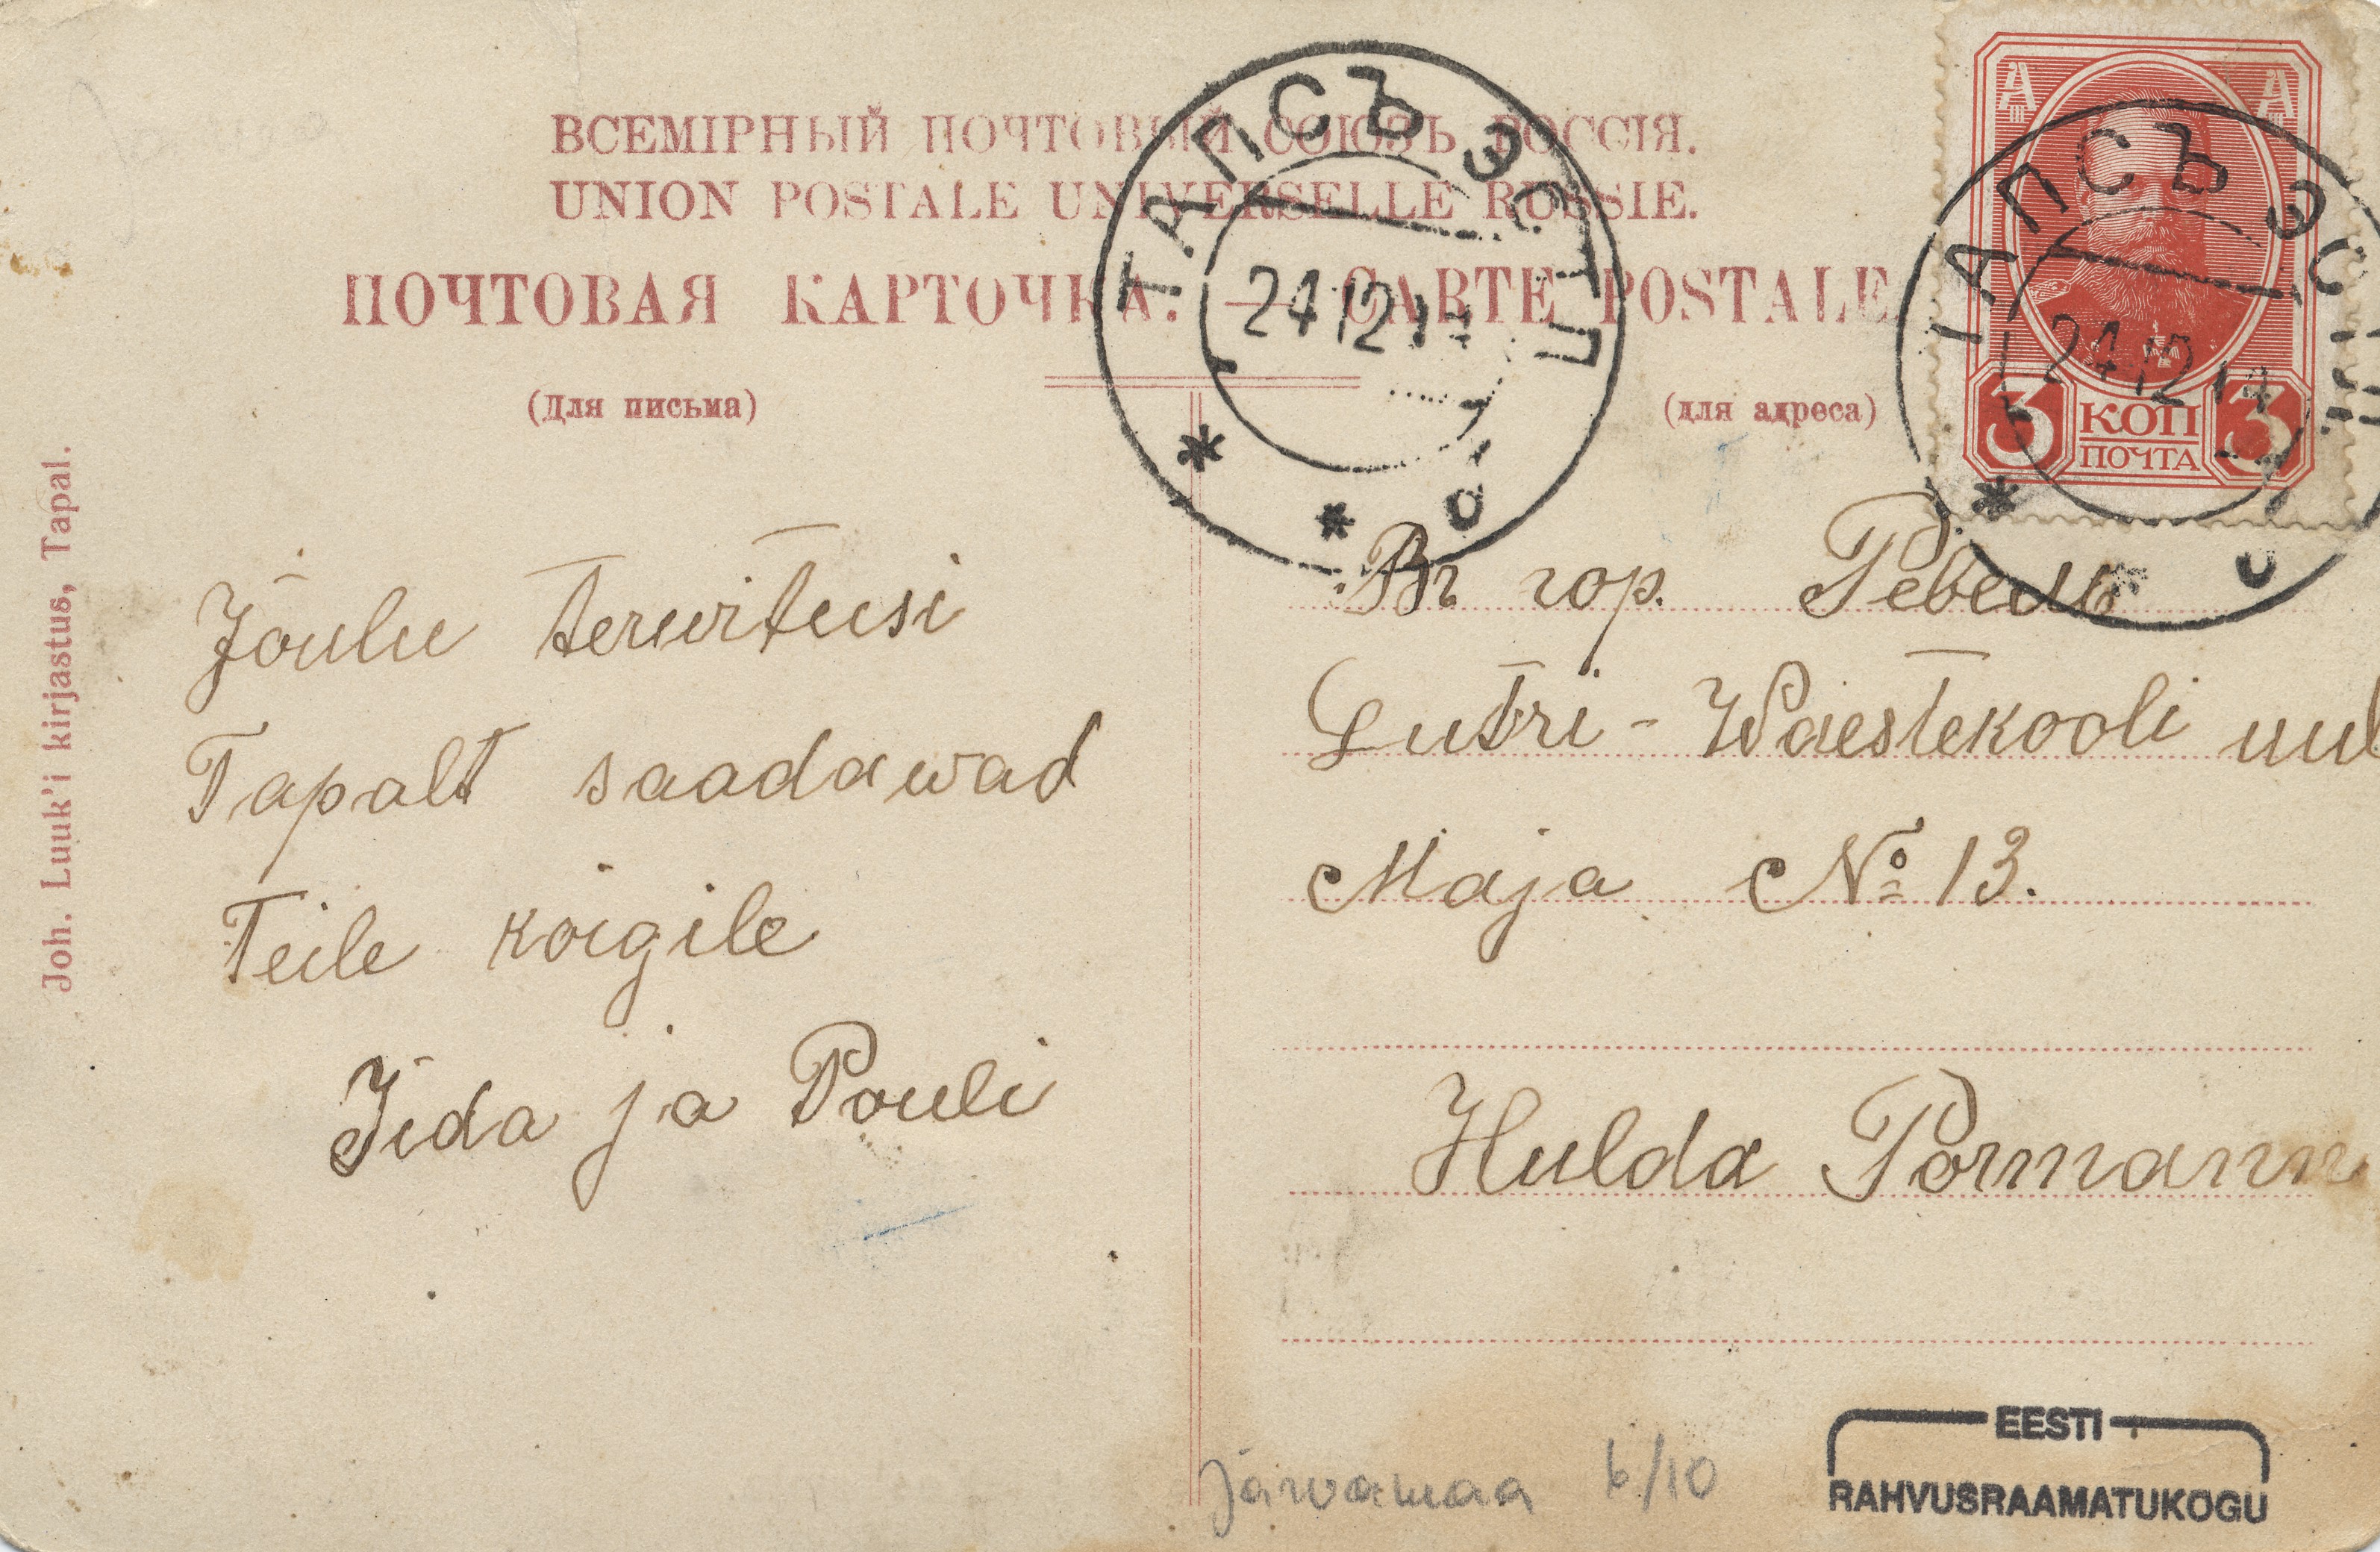 ВСЕМІРНЫЙ ПОЧТОВЫЙ СОЮЗЪ РОССІЯ.
UNION POSTALE UNIVERSELLE RUSSIE.
ПОЧТОВАЯ КАРТОЧКА. — CARTE POSTALE
(Для письма)
(для адреса)
ТАПСЪ ЭСТЛ
24 12 14
ТАПСЪ ЭСТЛ
24 12 14
3 КОП 3
ПОЧТА
Joh. Luuk'i kirjastus, Tapal.
Jõulu terwitusi
Tapalt saadawad
Teile kõigile
Iida ja Pouli
Въ гор. Ревель
Lutri-Waestekooli uul
Maja № 13.
Hulda Pormann
Järvamaa 6/10
EESTI
RAHVUSRAAMATUKOGU